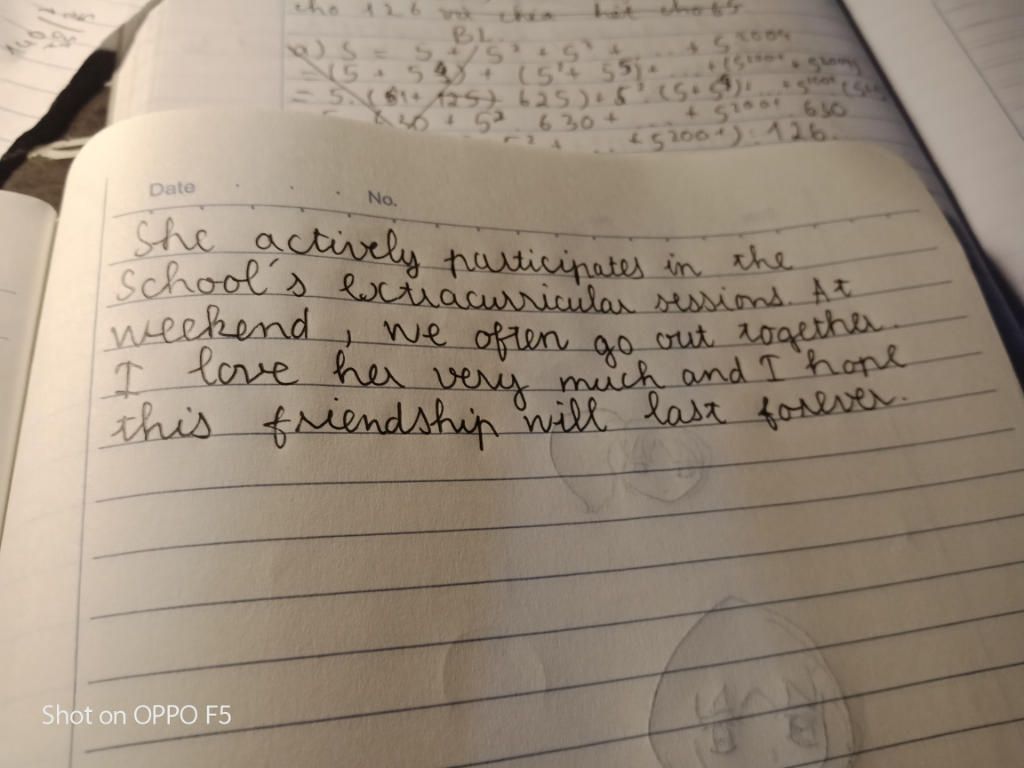 cho 126
BL
a) S = 5 + 5² + 5³ + ... + 5²⁰⁰⁴
= (5 + 5⁴) + (5² + 5⁵) + ... +
625) + 5².
+ 5² 630 + ... + 5²⁰⁰¹ 630
+ ... + 5²⁰⁰¹) : 126.
Date No.
She actively participates in the
School's extracurricular sessions. At
weekend, we often go out together.
I love her very much and I hope
this friendship will last forever.
Shot on OPPO F5